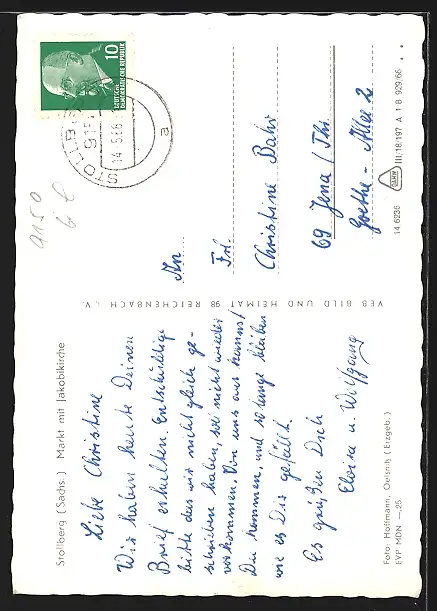 Stollberg (Sachs.) Markt mit Jakobikirche
Liebe Christine
Wir haben heute Deinen
Brief erhalten Entschuldige
bitte das wir nicht gleich ge-
schrieben haben, soll nicht wieder
vorkommen. Von uns aus kannst
Du kommen, und so lange bleiben
wie es Dir gefällt.
Es grüßen Dich
u. Wolfgang
Foto: Hoffmann, Oelsnitz (Erzgeb.)
EVP MDN —,25
VEB BILD UND HEIMAT 98 REICHENBACH i. V.
10
DEUTSCHE
DEMOKRATISCHE REPUBLIK
STOLLB
915
a
9150
An
Frl.
Christine Bahr
69 Jena / Thr
Goethe-Allee 2
14 6236
III/18/197 A 1 B 929/66 **